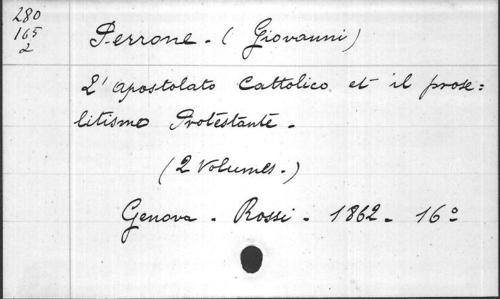 280
165
2
Perrone. (Giovanni)
L'apostolato Cattolico et il prose=
litismo Protestante.
(2 Volumes.)
Genova. Rossi. 1862. 16º